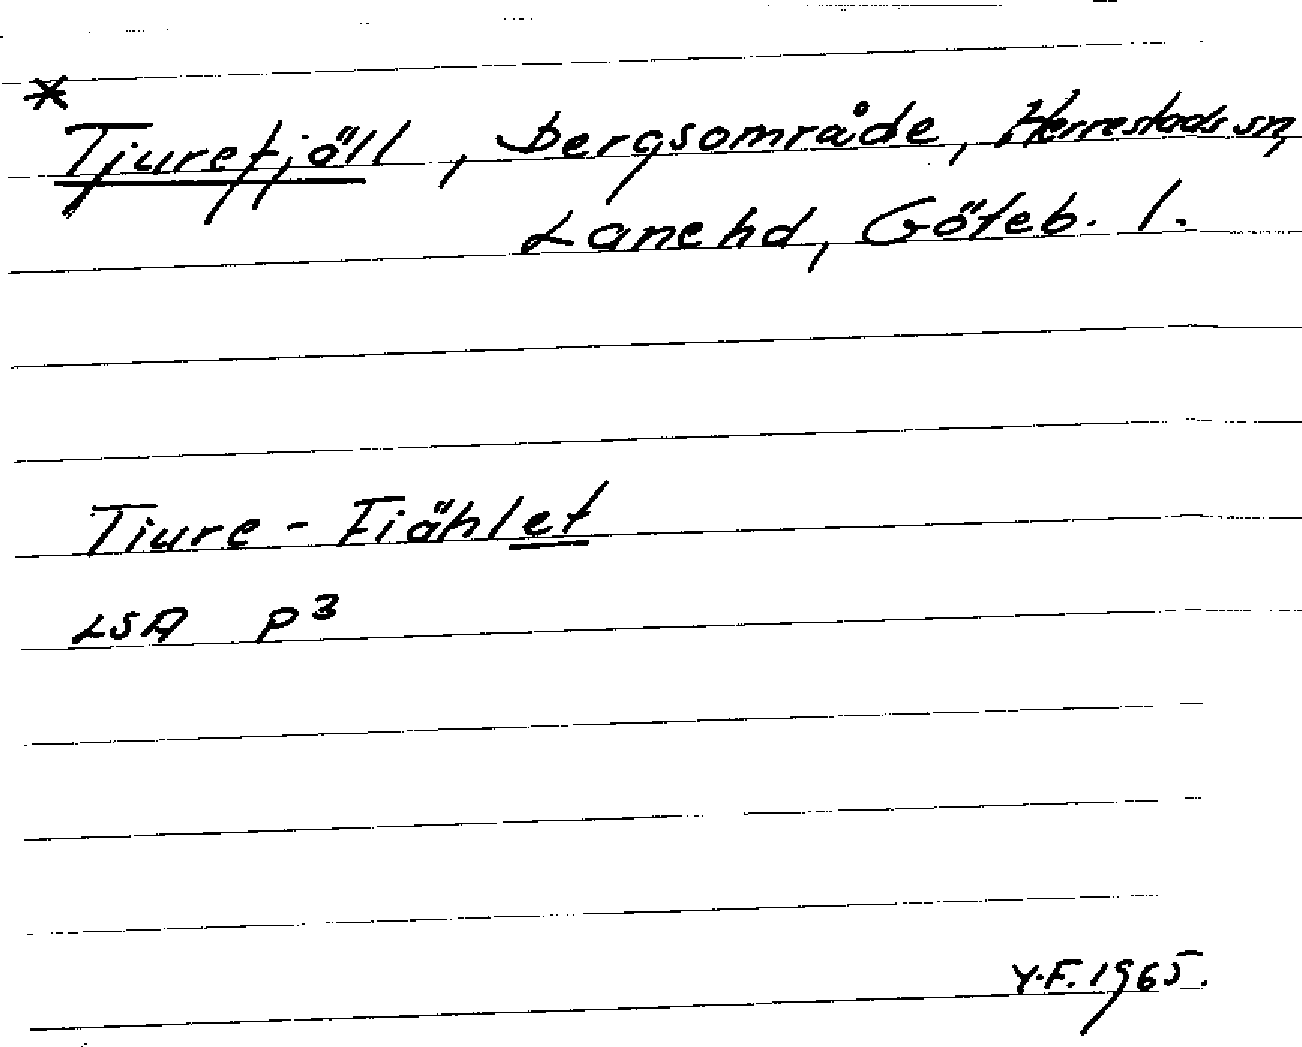 *
Tjurefjäll, bergsområde, Herrestads sn,
Lane hd, Göteb. l.
Tiure-Fiählet
LSA P3
Y.F. 1965.